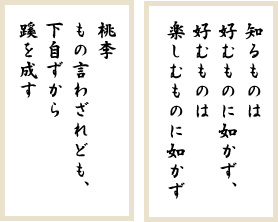 知るものは
好むものに如かず、
好むものは
楽しむものに如かず
桃李
もの言わざれども、
下自ずから
蹊を成す